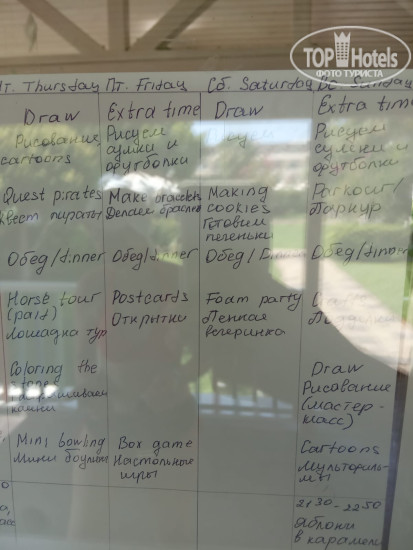 TOP Hotels
ФОТО ТУРИСТА
Чт. Thursday
Draw
Рисование
cartoons
Quest pirates
Квест пираты
Обед/dinner
Horse tour
(paid)
Лошадка тур
Coloring the
stones
Раскрашиваем
камни
Mini bowling
Мини боулинг
Пт. Friday
Extra time
Рисуем
сумки и
футболки
Make bracelets
Делаем браслеты
Обед/dinner
Postcards
Открытки
Box game
Настольные
игры
Сб. Saturday
Draw
Рисуем
Making
cookies
Готовим
печеньки
Обед/Dinner
Foam party
Пенная
вечеринка
Вс. Sunday
Extra time
Рисуем
сумки и
футболки
Parkour/
Паркур
Обед/dinner
Поделки
Draw
Рисование
(мастер-
класс)
Cartoons
Мультфиль-
мы
21:30-22:50
Яблоки
в карамели